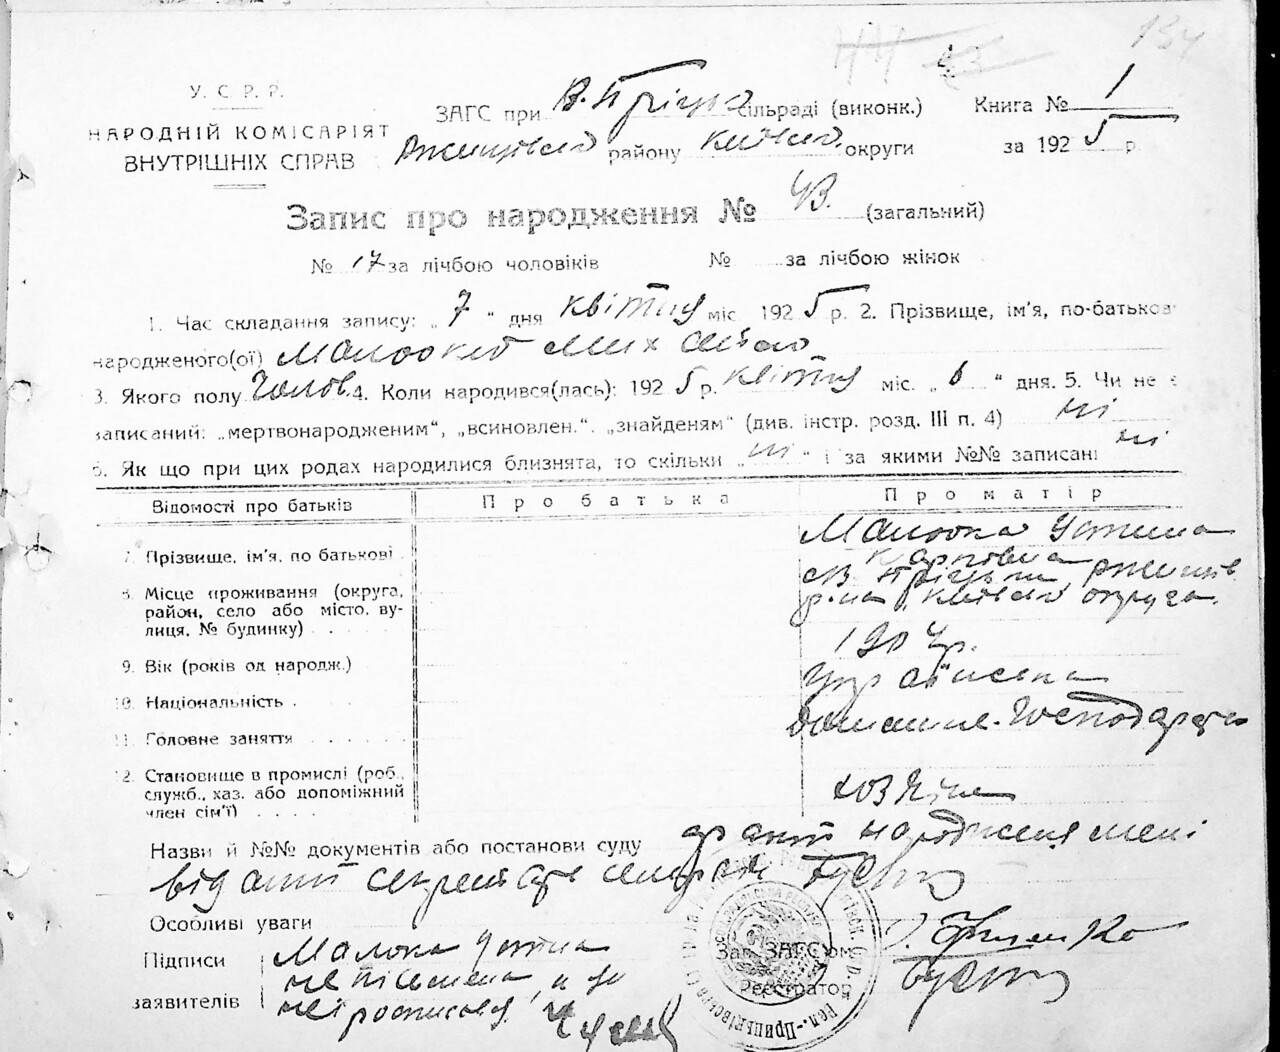 134
У. С. Р. Р.
НАРОДНІЙ КОМІСАРІЯТ
ВНУТРІШНІХ СПРАВ
ЗАГС при В. Пріцьк сільраді (виконк.)
Книга № 1
Ржищівсько району Київсько округи
за 1925 р.
Запис про народження № 43. (загальний)
№ 17 за лічбою чоловіків № за лічбою жінок
1. Час складання запису: „ 7 “ дня квітня міс 1925 р. 2. Прізвище, ім'я, по-батькові
народженого(ої)
3. Якого полу Чолов. 4. Коли народився(лась): 1925 р. квітня міс. „ 6 “ дня. 5. Чи не є
записаний: „мертвонародженим“, „всиновлен.“. „знайденям“ (див. інстр. розд. III п. 4) ні
6. Як що при цих родах народилися близнята, то скільки „ ні “ і за якими №№ записані ні
Відомості про батьків
Про батька
Про матір
7. Прізвище, ім'я, по батькові
Малоока Устина
Карповна
8. Місце проживання (округа,
район, село або місто, ву-
лиця, № будинку)
с. В. Пріцьки, Ржищів
р-на, Київсько округа.
9. Вік (років од народж.)
1904 р.
10. Національність .
Українка
11. Головне заняття
домашнє господарство
12. Становище в промислі (роб.,
служб., хаз. або допоміжний
член сім'ї)
хозяйка
Назви й №№ документів або постанови суду факт народження мені
відомий секретарь сельради
Особливі уваги
Підписи
заявителів
Малоока Устина
не письмена, а за
неї росписався
Зав. ЗАГС'ом
Реєстратор